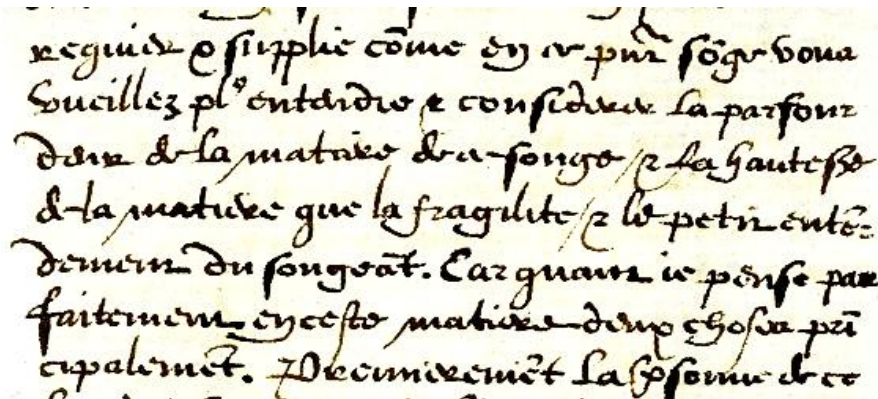 requier & supplie cõme en ce pñt sõge vous
vueillez pl⁹ entendre & considerer la parfon
deur de la matiere de ce songe / & la haultesse
de la matiere que la fragilite / & le petit entẽ-
dement du songeãt. Car quant ie pense par
faitement en ceste matiere deux choses prī
cipalemẽt. Premieremẽt la ꝑsonne de ce